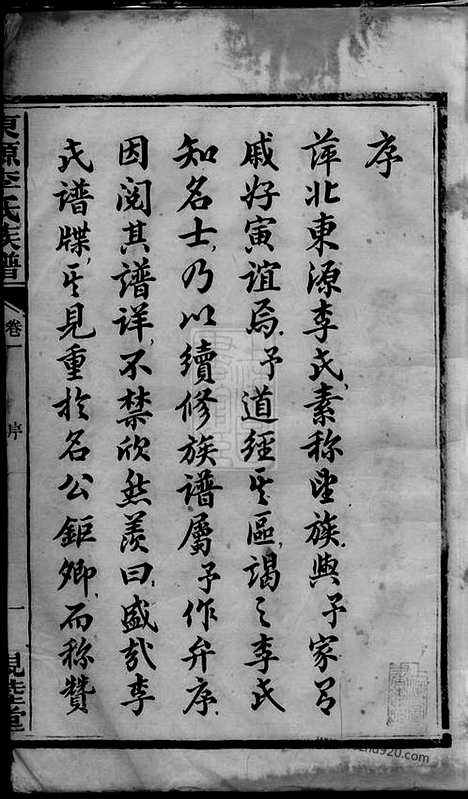 序
萍北東源李氏素称望族與予家有
戚好寅誼焉予道經其區謁之李氏
知名士乃以續修族譜屬予作弁序
因閱其譜詳不禁欣然羡曰盛哉李
氏譜牒其見重於名公鉅卿而称贊
東源李氏族譜
卷一
序
一